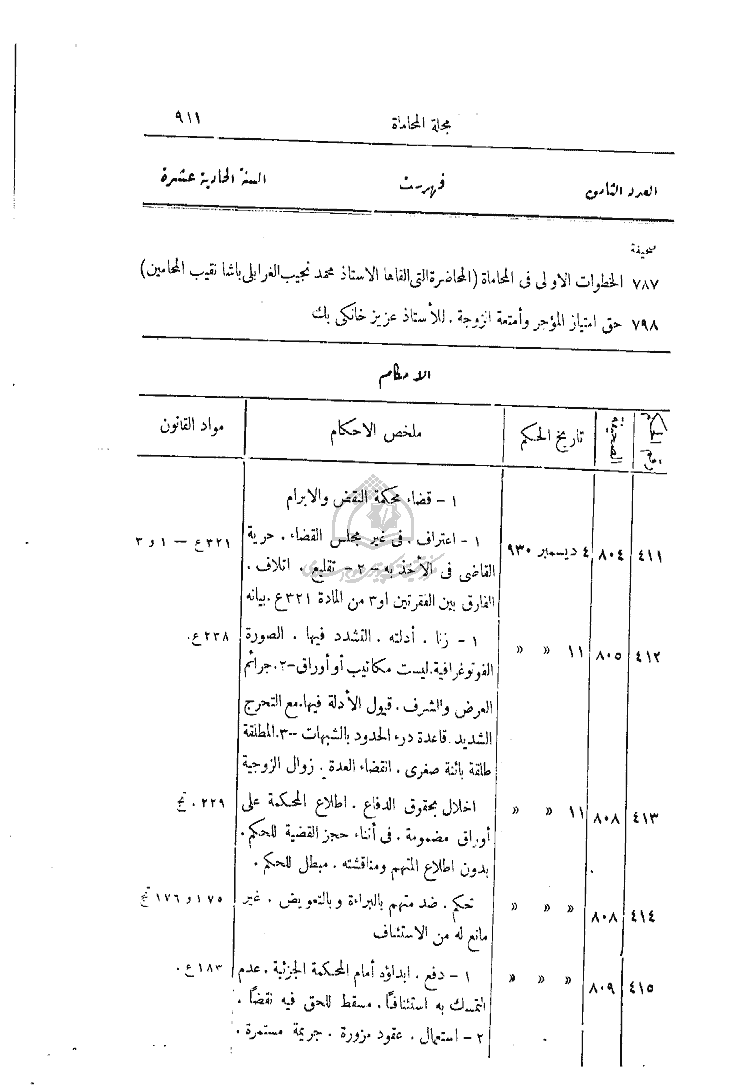 مجلة المحاماة ٩١١
العدد الثامن فهرست السنة الحادية عشرة
صحيفة
٧٨٧ الخطوات الاولى فى المحاماة (المحاضرة التى القاها الاستاذ محمد نجيب الغرابلى باشا نقيب المحامين)
٧٩٨ حق امتياز المؤجر وأمتعة الزوجة . للأستاذ عزيز خانكى بك
الاحكام
رقم الحكم الصحيفة تاريخ الحكم ملخص الاحكام مواد القانون
١ – قضاء محكمة النقض والابرام
٤١١ ٨٠٤ ٤ ديسمبر ٩٣٠ ١ – اعتراف . فى غير مجلس القضاء . حرية ٣٢١ع – ١ و ٣
القاضى فى الأخذ به – ٢ – تقليع . اتلاف .
الفارق بين الفقرتين او٣ من المادة ٣٢١ع . بيانه
٤١٢ ٨٠٥ ١١ » » ١ – زنا . أدلته . التشدد فيها . الصورة ٢٣٨ع.
الفوتوغرافية . ليست مكاتيب أو أوراق – ٢ . جرائم
العرض والشرف . قبول الأدلة فيها . مع التحرج
الشديد . قاعدة درء الحدود بالشبهات – ٣ . المطلقة
طلقة بائنة صغرى . انقضاء العدة . زوال الزوجية
٤١٣ ٨٠٨ ١١ » » اخلال بحقوق الدفاع . اطلاع المحكمة على ٢٢٩ . تج
أوراق مضمومة . فى أثناء حجز القضية للحكم .
بدون اطلاع المتهم ومناقشته . مبطل للحكم .
٤١٤ ٨٠٨ » » » تحكم . ضد متهم بالبراءة وبالتعويض . غير ١٧٥ و ١٧٦ تج
مانع له من الاستئناف
٤١٥ ٨٠٩ » » » ١ – دفع . ابداؤه أمام المحكمة الجزئية . عدم ١٨٣ع.
التمسك به استئنافاً . مسقط للحق فيه نقضاً .
٢ – استعمال . عقود مزورة . جريمة مستمرة .